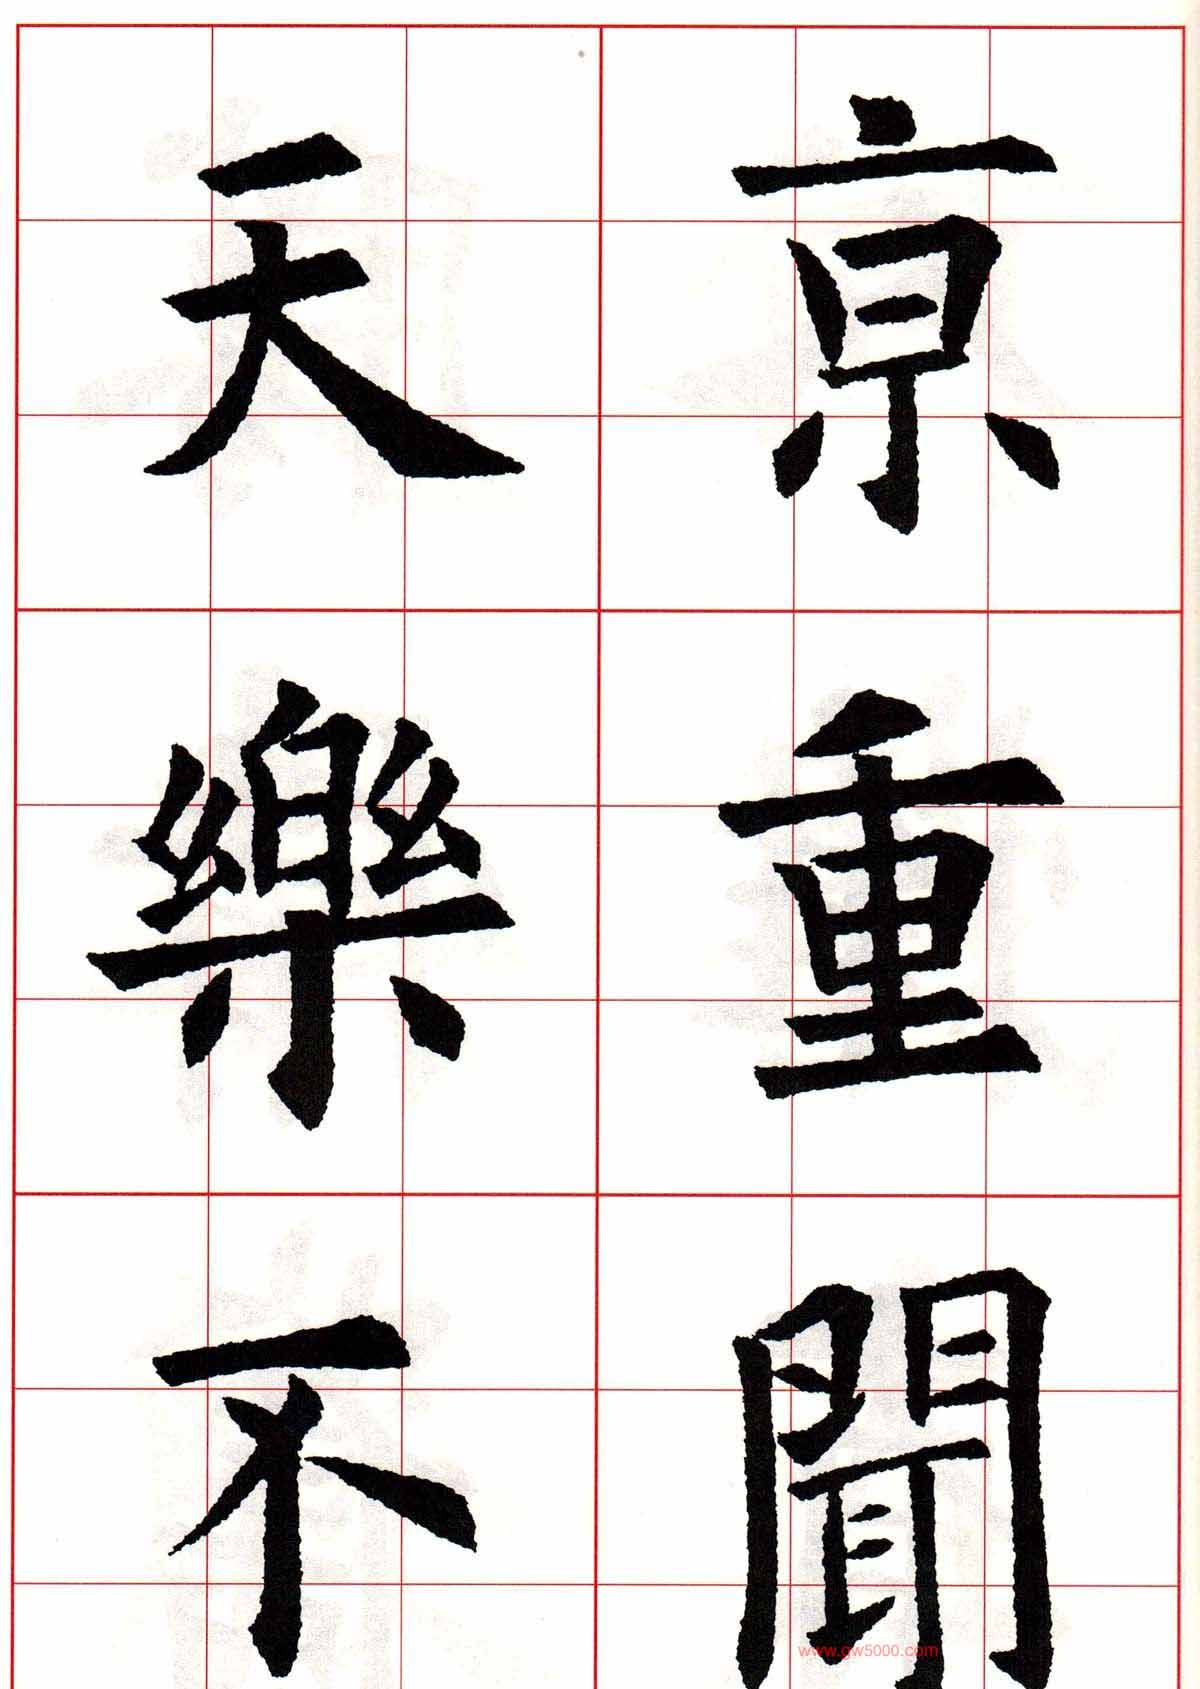 亰重聞
天樂不
www.gw5000.com